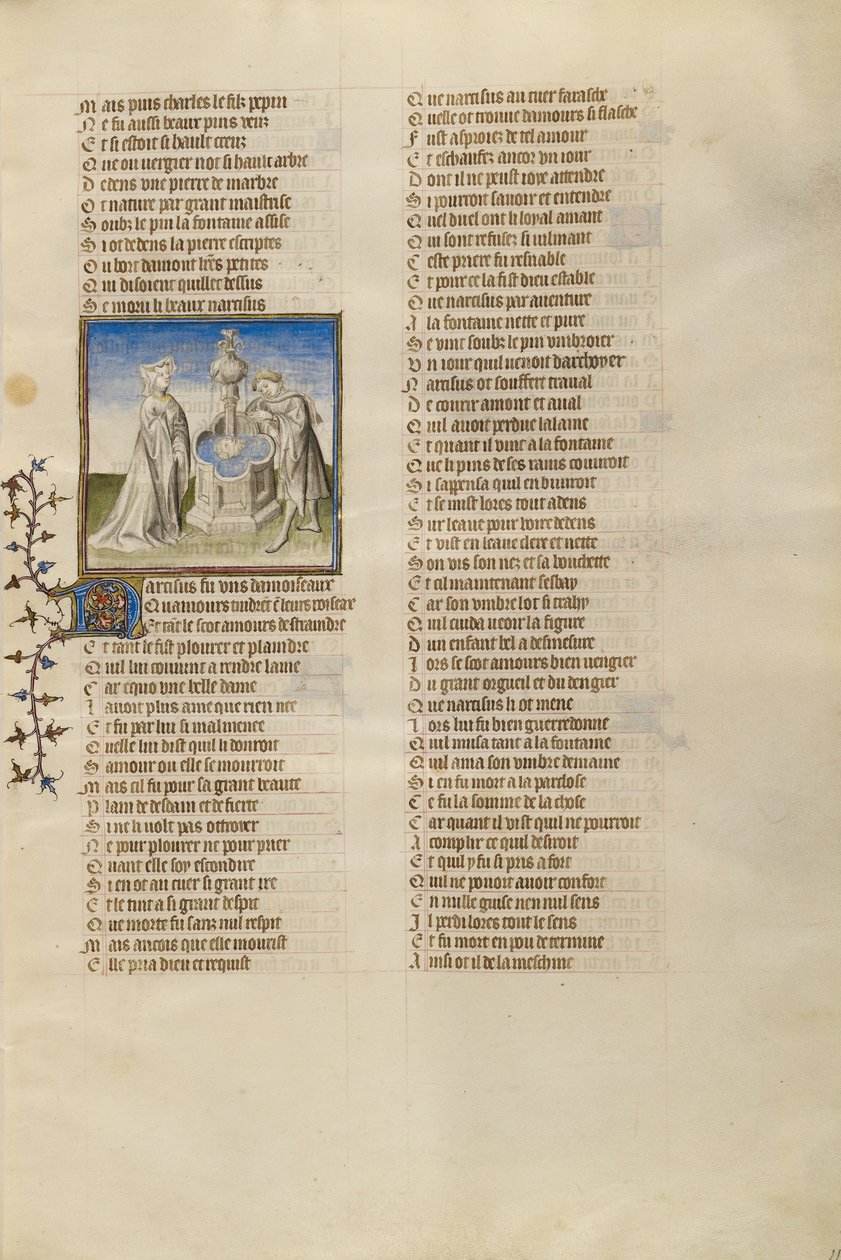 Mais puis charles le filz pepin
Ne fu aussi beaux pins veuz
Et si estoit si hault creuz
Que ou vergier not si hault arbre
Dedens vne pierre de marbre
Ot nature par grant maistrise
Soubz le pin la fontaine assise
Si ot dedens la pierre escriptes
Ou bort damont lr̄es petites
Qui disoient quillec dessus
Se moru li beaux narcisus
Narcisus fu vns damoiseaux
Quamours tindrēt ē leurs roiseax
Et tāt le scot amours destraindre
Et tant le fist plourer et plaindre
Quil lui couuint a rendre lame
Car equo vne belle dame
Lauoit plus ame que rien nee
Et fu par lui si mal menee
Quelle lui dist quil li donroit
Samour ou elle se mourroit
Mais cil fu pour sa grant beaute
Plain de desdain et de fierte
Si ne li volt pas ottroyer
Ne pour plourer ne pour prier
Quant elle soy escondire
Si en ot au cuer si grant ire
Et le tint a si grant despit
Que morte fu sanz nul respit
Mais ancois que elle mourist
Elle pria dieu et requist
Que narcisus au cuer farasche
Quelle ot trouue damours si flasche
Fust asproiez de tel amour
Et eschaufez ancor vn iour
Dont il ne peust ioye attendre
Si pourroit sauoir et entendre
Quel duel ont li loyal amant
Qui sont refusez si uilmant
Ceste priere fu resnable
Et pour ce la fist dieu estable
Que narcisus par auenture
A la fontaine nette et pure
Se vint soubz le pin vmbroier
Vn iour quil uenoit darchoyer
Narcisus ot souffert trauail
De courir amont et aual
Quil auoit perdue lalaine
Et quant il vint a la fontaine
Que li pins de ses rains couuroit
Si sappensa quil en buuroit
Et se mist lores tout adens
Sur leaue pour boire dedens
Et vist en leaue clere et nette
Son vis son nez et sa bouchette
Et cil maintenant sesbay
Car son vmbre lot si trahy
Quil cuida ueoir la figure
Dun enfant bel a desmesure
Lors se scot amours bien uengier
Du grant orgueil et du dengier
Que narcisus li ot mene
Lors lui fu bien guerredonne
Quil musa tant a la fontaine
Quil ama son vmbre demaine
Si en fu mort a la parclose
Ce fu la somme de la chose
Car quant il vist quil ne pourroit
Acomplir ce quil desiroit
Et quil y fu si pris a fort
Quil ne pouoit auoir confort
En nulle guise nen nul sens
Il perdi lores tout le sens
Et fu mort en pou de termine
Ainsi ot il de la meschine